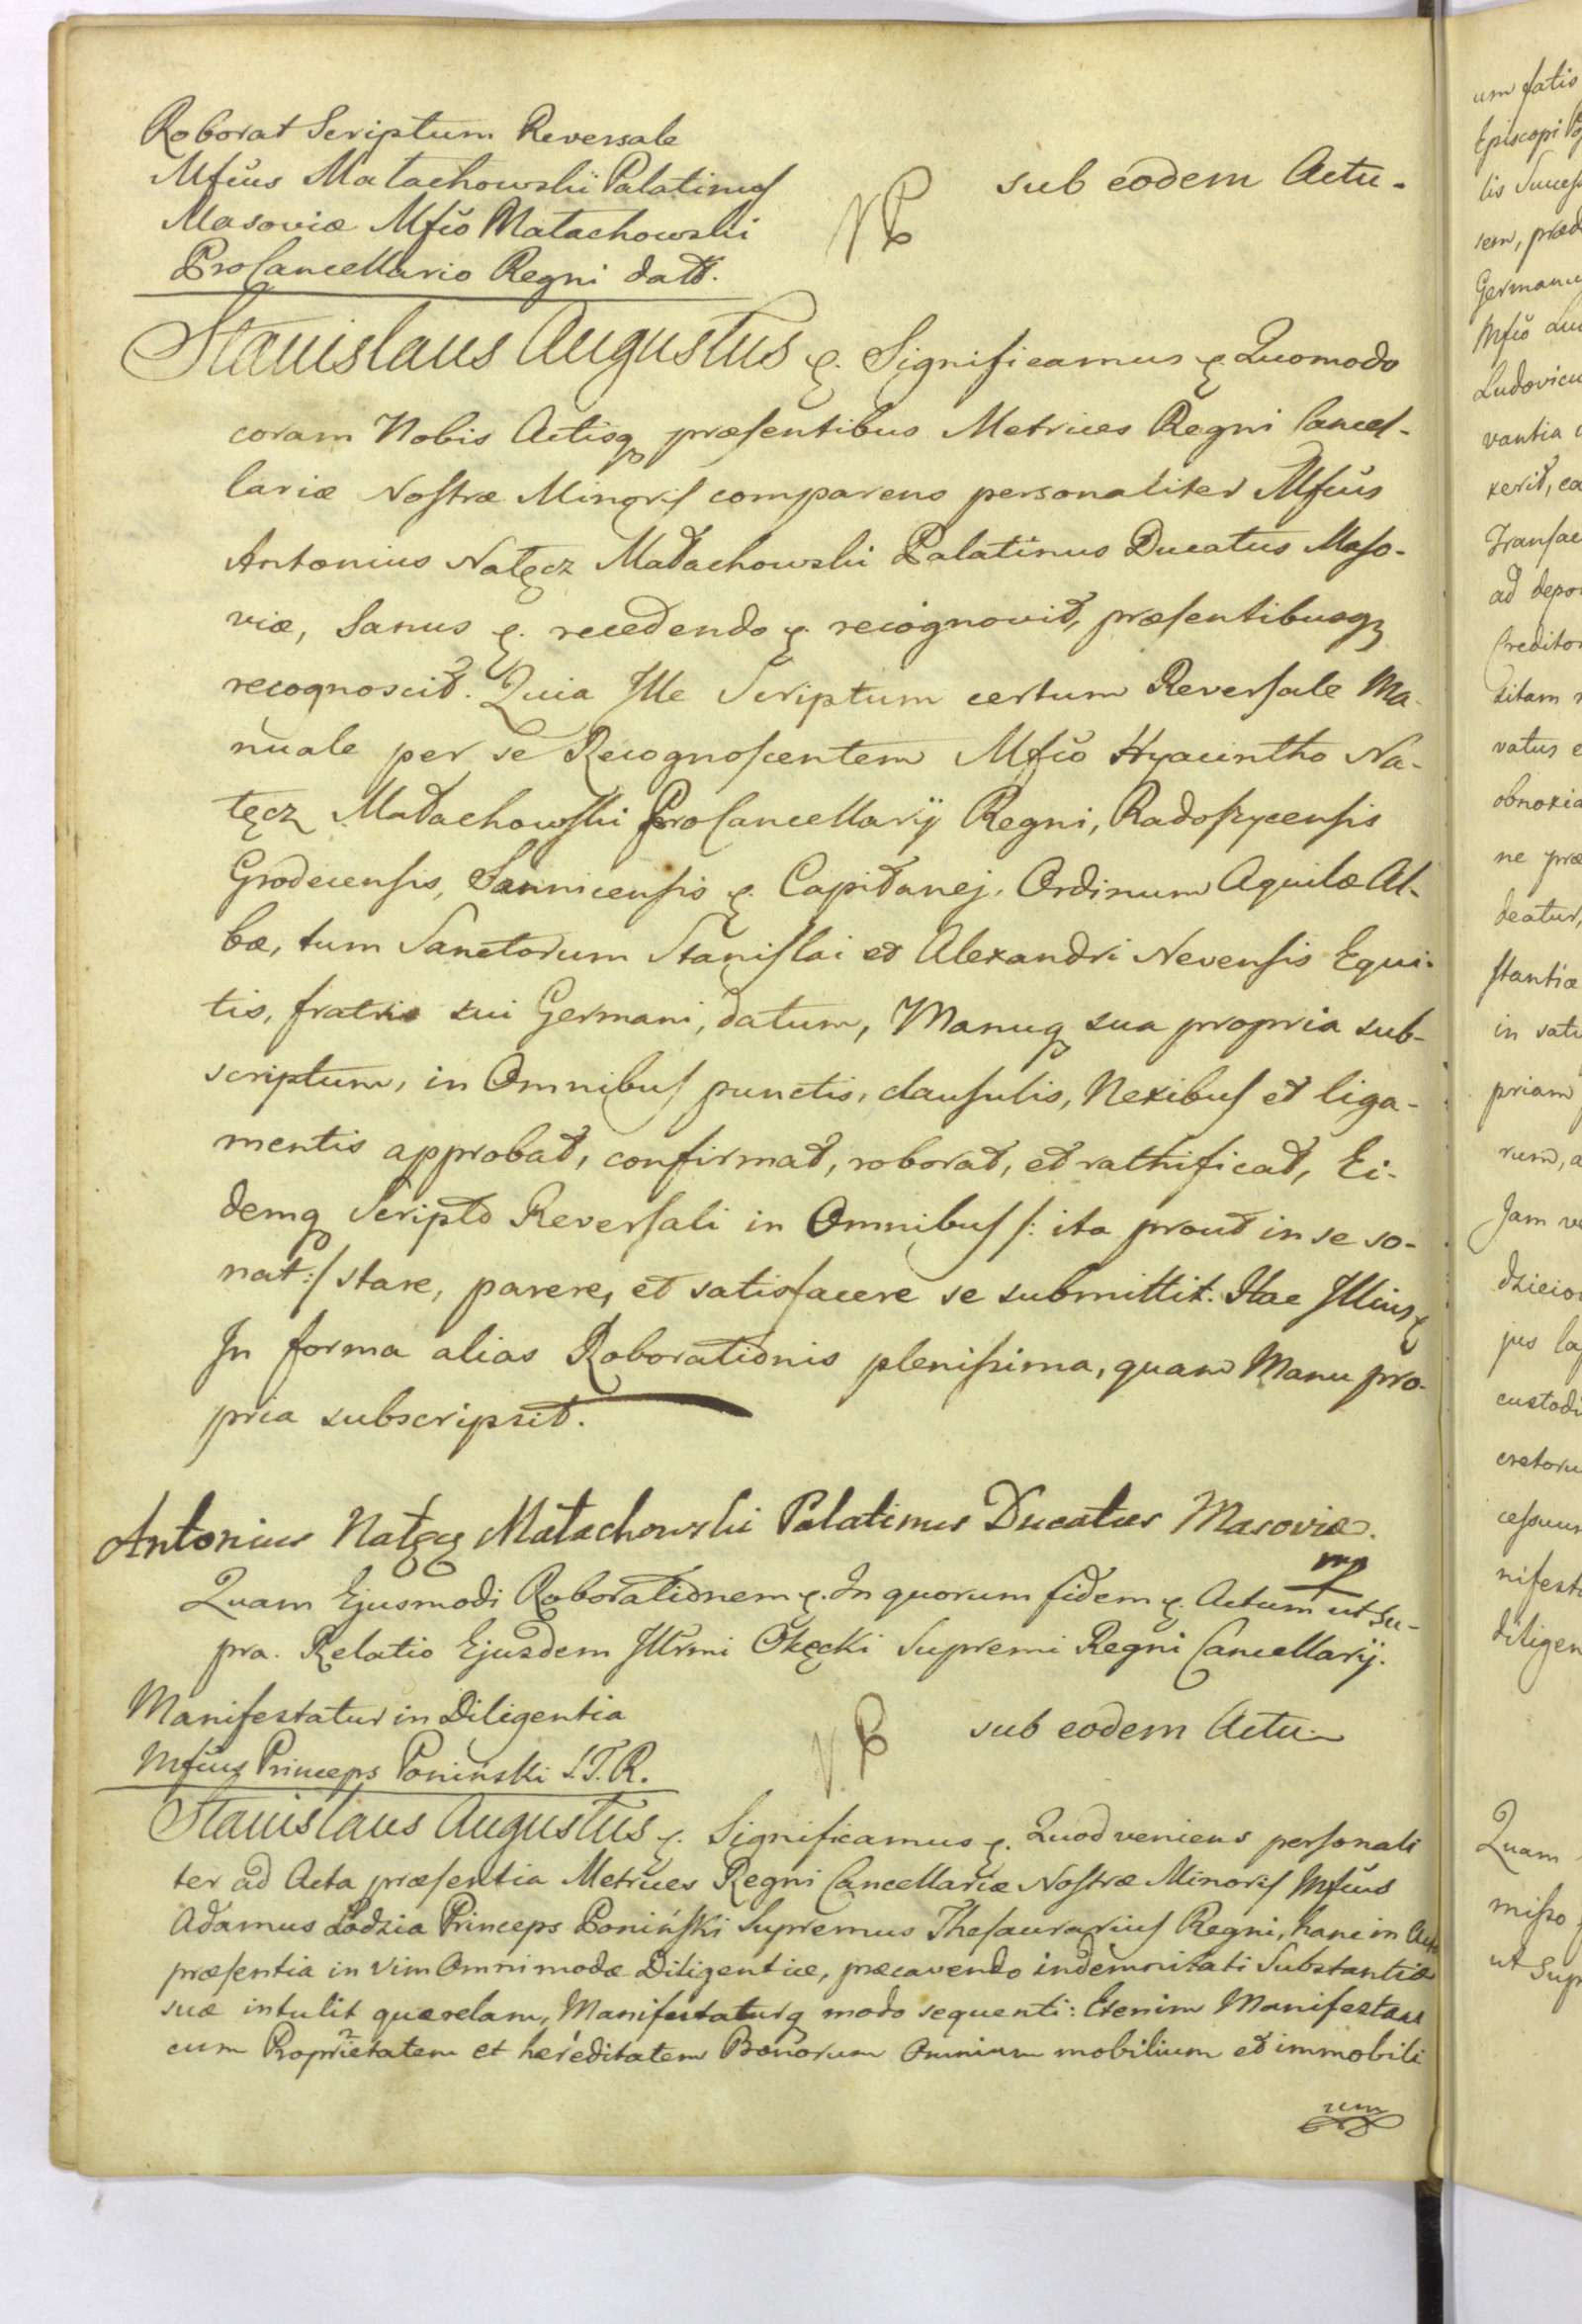 Roborat Scriptum Reversale
Mfcus Małachowski Palatinus
Masoviæ Mfco Małachowski
ProCancellario Regni datt.
NB
sub eodem Actu.
Stanislaus Augustus &. Significamus &. Quomodo
coram Nobis Actisq præsentibus Metrices Regni Cancel-
lariæ Nostræ Minoris comparens personaliter Mfcus
Antonius Nałęcz Małachowski Palatinus Ducatus Maso-
viæ, Sanus &. recedendo &. recognovit, præsentibusq
recognoscit. Quia Ille Scriptum certum Reversale Ma-
nuale per se Recognoscentem Mfco Hyacintho Na-
łęcz Małachowski ProCancellarij Regni, Radoszycensis
Grodecensis, Sannicensis &. Capitanej, Ordinum Aquilæ Al-
bæ, tum Sanctorum Stanislai et Alexandri Nevensis Equi-
tis, fratris sui Germani, datum, Manuq sua propria sub-
scriptum, in Omnibus punctis, clausulis, Nexibus et liga-
mentis approbat, confirmat, roborat, et rathificat, Ei-
demq Scripto Reversali in Omnibus /: ita prout in se so-
nat :/ stare, parere, et satisfacere se submittit. Hac Illius &
In forma alias Roborationis plenissima, quam Manu pro-
pria subscripsit.
Antonius Nałęcz Małachowski Palatinus Ducatus Masoviæ.
mp
Quam Ejusmodi Roborationem &. In quorum fidem &. Actum ut su-
pra. Relatio Ejusdem Illrmi Okęcki Supremi Regni Cancellarij.
Manifestatur in Diligentia
Mfcus Princeps Poninski S.T.R.
NB
sub eodem Actu
Stanislaus Augustus &. Significamus &. Quod veniens personali
ter ad Acta præsentia Metrices Regni Cancellariæ Nostræ Minoris Mfcus
Adamus Łodzia Princeps Poniński Supremus Thesaurarius Regni, hanc in Acta
præsentia in vim Omnimodæ Diligentiæ, præcavendo indemnitati Substantiæ
suæ intulit querelam, Manifestaturq modo sequenti: Etenim Manifestans
cum Proprietatem et hereditatem Bonorum Omnium mobilium et immobili
um
um fatis
Episcopi
lis
sem, præd
Mfco
vantia
xerit, ea
ad depo
sitam
vatus e
obnoxia
ne præ
deatur,
stantiæ
in sati
priam
rum, a
Jam ve
custodi
nifest
diligen
Quam
misso
ut sup